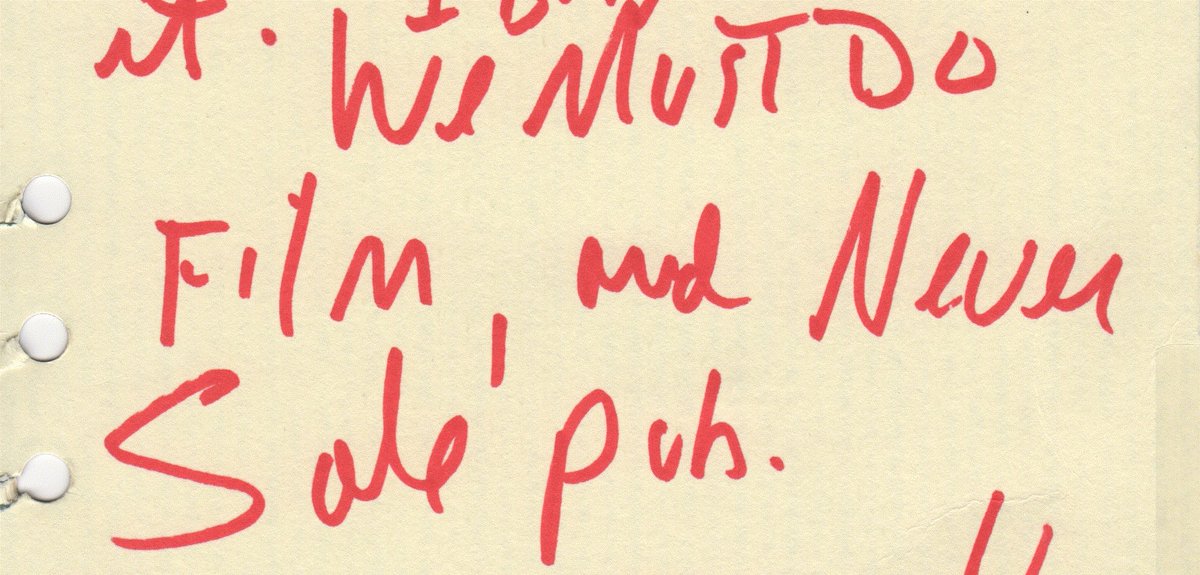 it. I
We Must Do
Film, and Never
Sale pub.